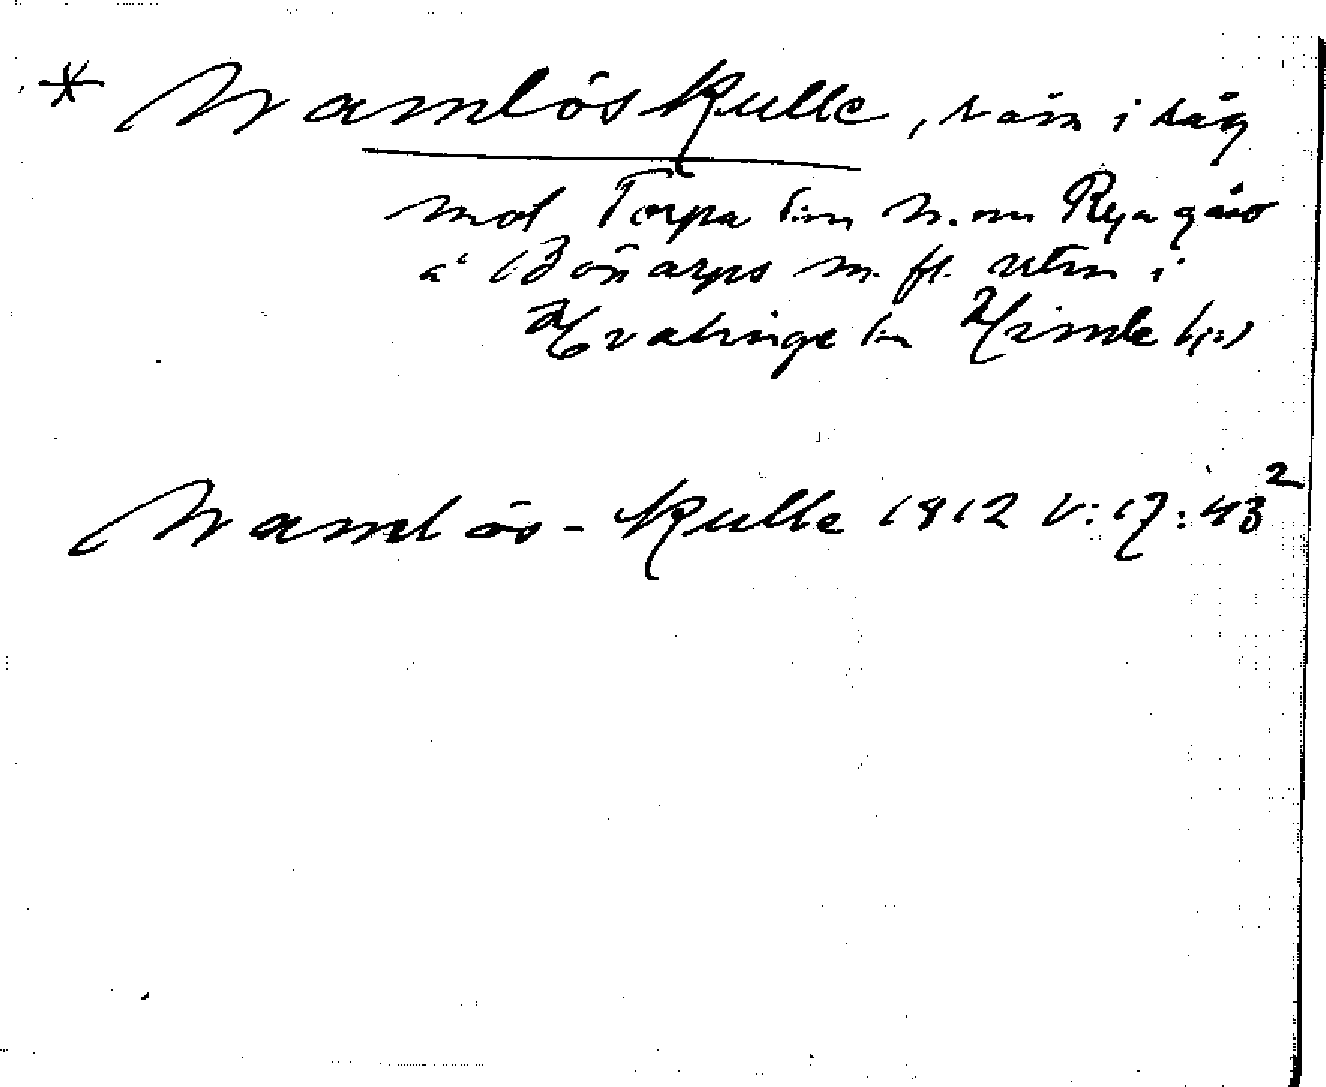 * Namlöskulle, röse i häg
mot Torpa sn N. om Rya gård
å Bönarps m. fl. utm i
Hvalinge sn Himle hd
Namlös-kulle 1812 V:17:43²